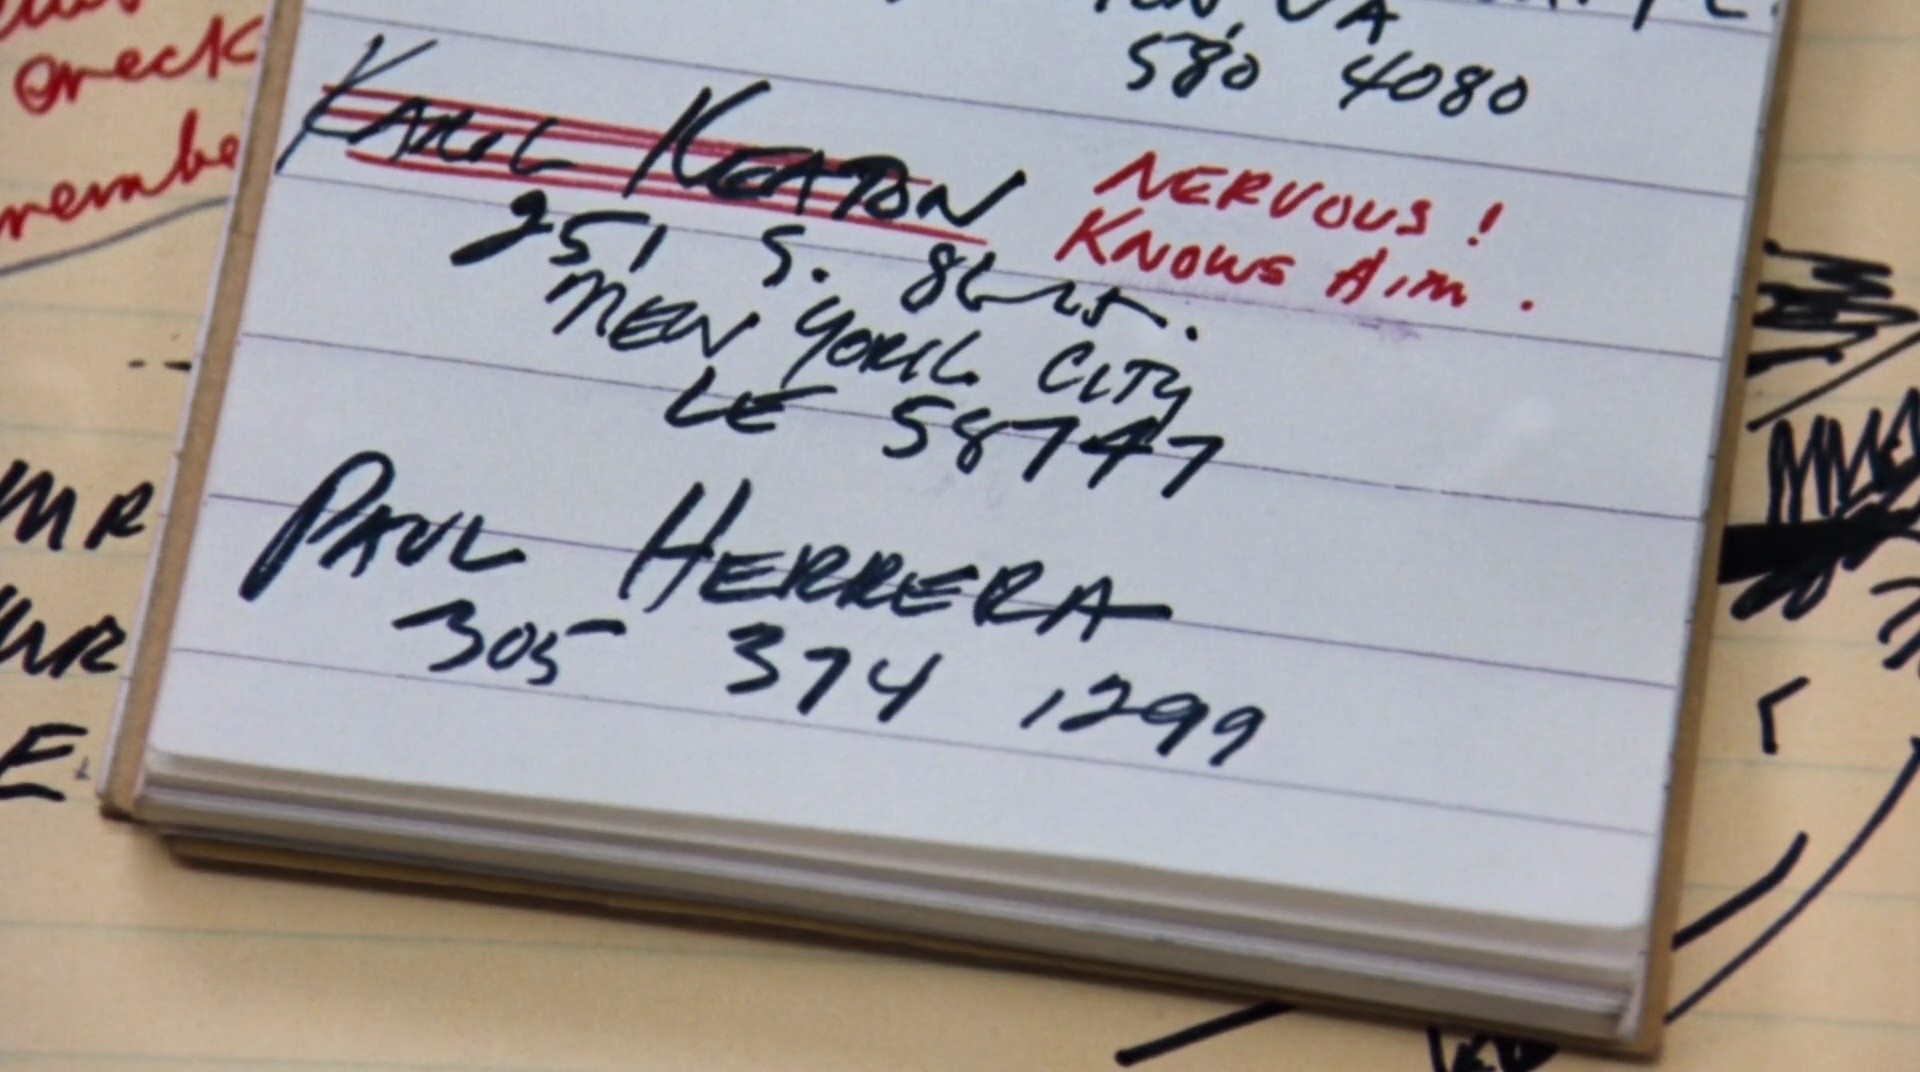 VA
580 4080
KARL KEATON
NERVOUS!
KNOWS Aim.
251 S. 86th St.
NEW YORK CITY
LE 58747
PAUL HERRERA
305 374 1299
check
remembe
MR
MR
E.